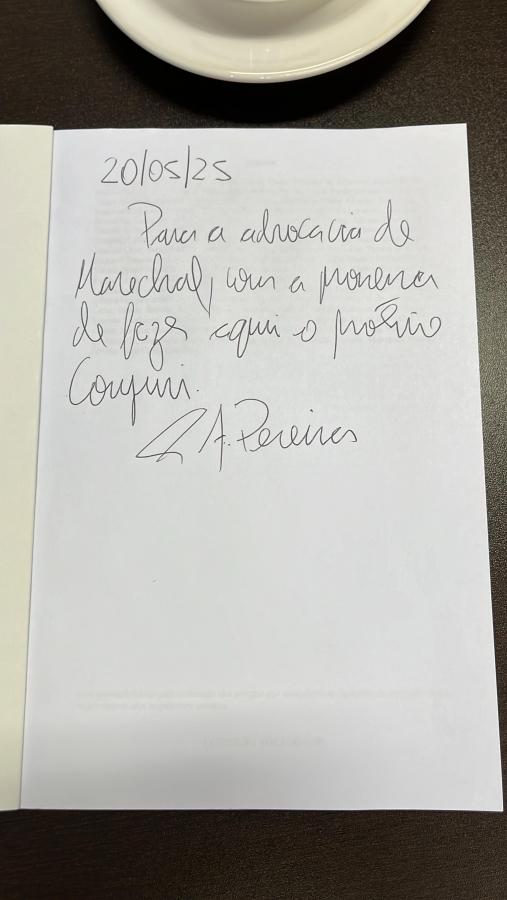 20/05/25
Para a advocacia de
Marechal, com a promessa
de fazer aqui o próximo
Conjur.
A. Pereira